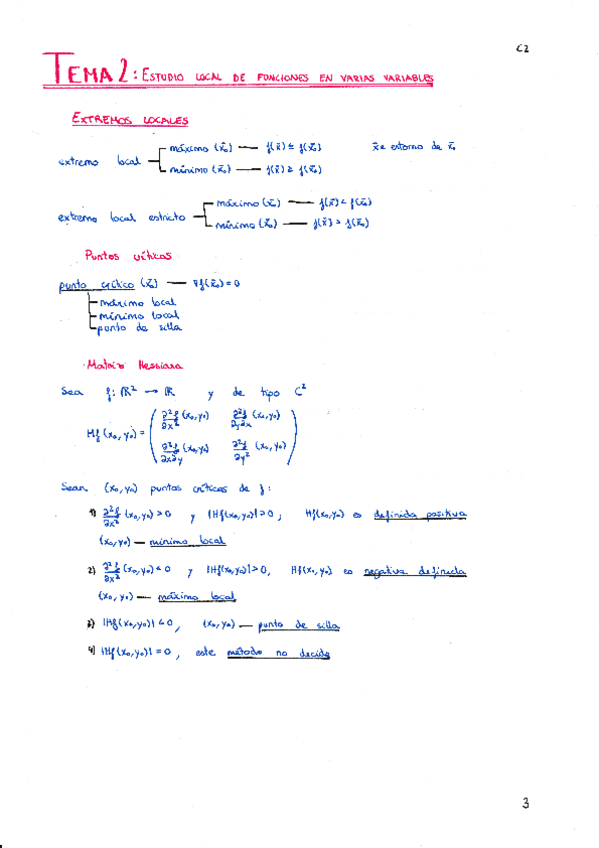 C2
TEMA 2: ESTUDIO LOCAL DE FUNCIONES EN VARIAS VARIABLES
EXTREMOS LOCALES
extremo local
máximo (x̄₀) — f(x̄) ≤ f(x̄₀)
x̄ ∈ entorno de x̄₀
mínimo (x̄₀) — f(x̄) ≥ f(x̄₀)
extremo local estricto
máximo (x̄₀) — f(x̄) < f(x̄₀)
mínimo (x̄₀) — f(x̄) > f(x̄₀)
Puntos críticos
punto crítico (x̄₀) — ∇f(x̄₀) = 0
máximo local
mínimo local
punto de silla
Matriz Hessiana
Sea f: ℝ² → ℝ y de tipo C²
Hf(x₀, y₀) = ( ∂²f/∂x² (x₀, y₀) ∂²f/∂y∂x (x₀, y₀)
∂²f/∂x∂y (x₀, y₀) ∂²f/∂y² (x₀, y₀) )
Sean (x₀, y₀) puntos críticos de f:
1) ∂²f/∂x² (x₀, y₀) > 0 y |Hf(x₀, y₀)| > 0, Hf(x₀, y₀) es definida positiva
(x₀, y₀) — mínimo local
2) ∂²f/∂x² (x₀, y₀) < 0 y |Hf(x₀, y₀)| > 0, Hf(x₀, y₀) es negativa definida
(x₀, y₀) — máximo local
3) |Hf(x₀, y₀)| < 0, (x₀, y₀) — punto de silla
4) |Hf(x₀, y₀)| = 0, este método no decide
3